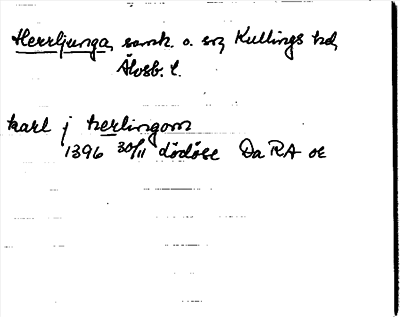 Herrljunga, samh. o. sn, Kullings hd,
Älvsb. l.
karl j herlingom
1396 30/11 dödöse Da RA oe